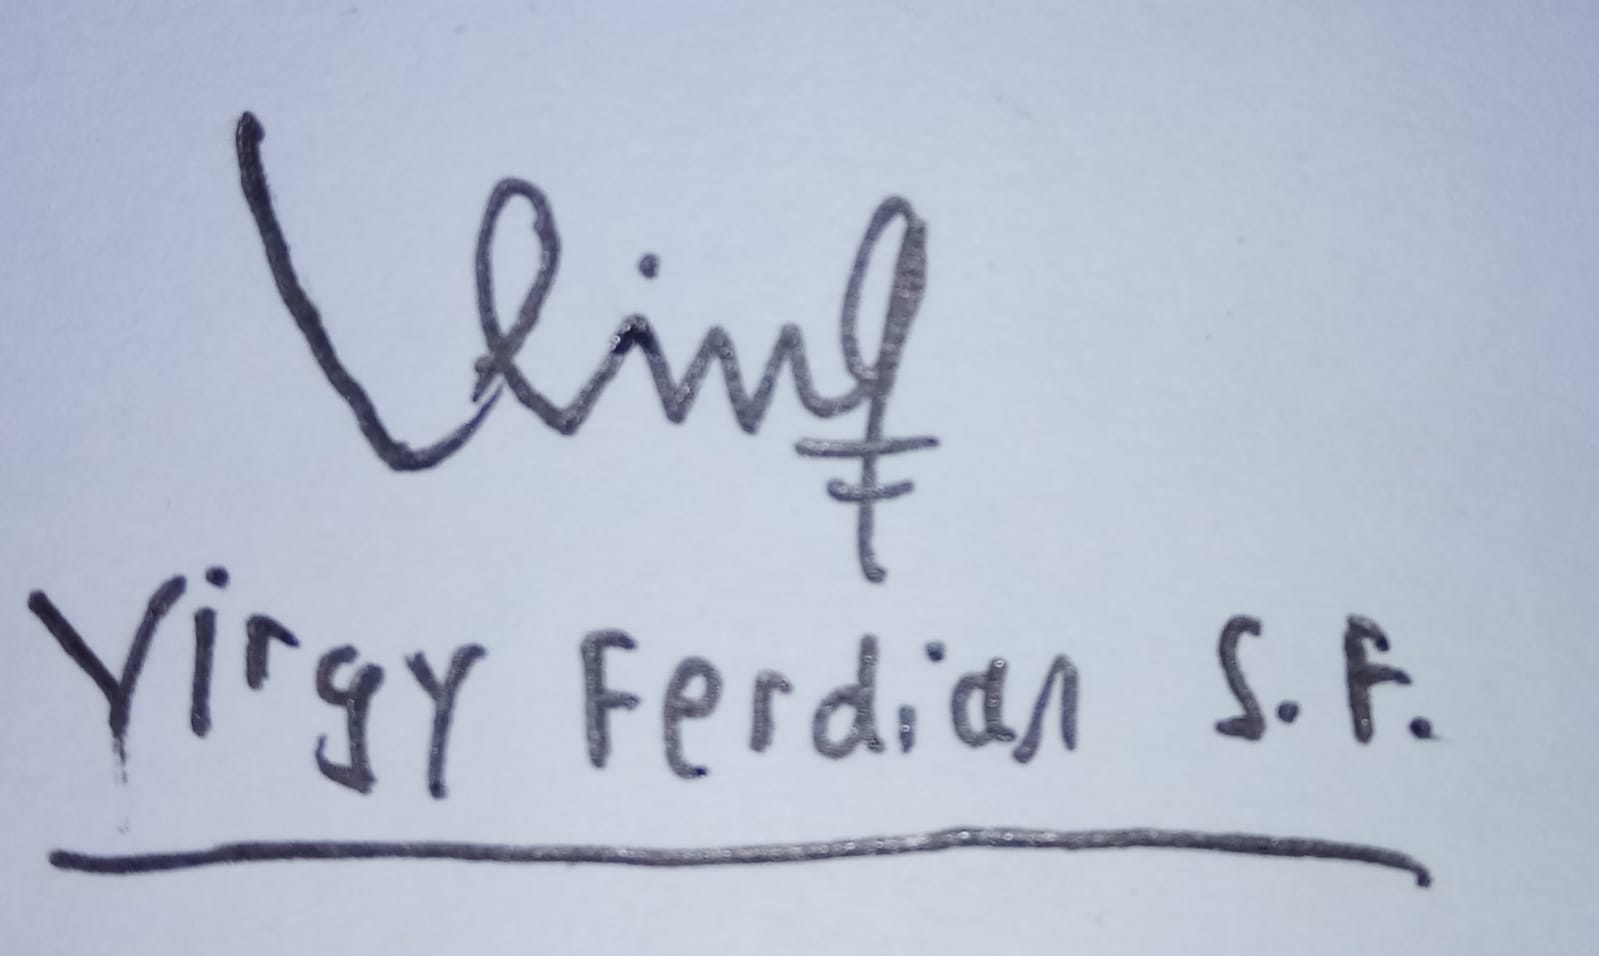 Virgy Ferdian S.F.